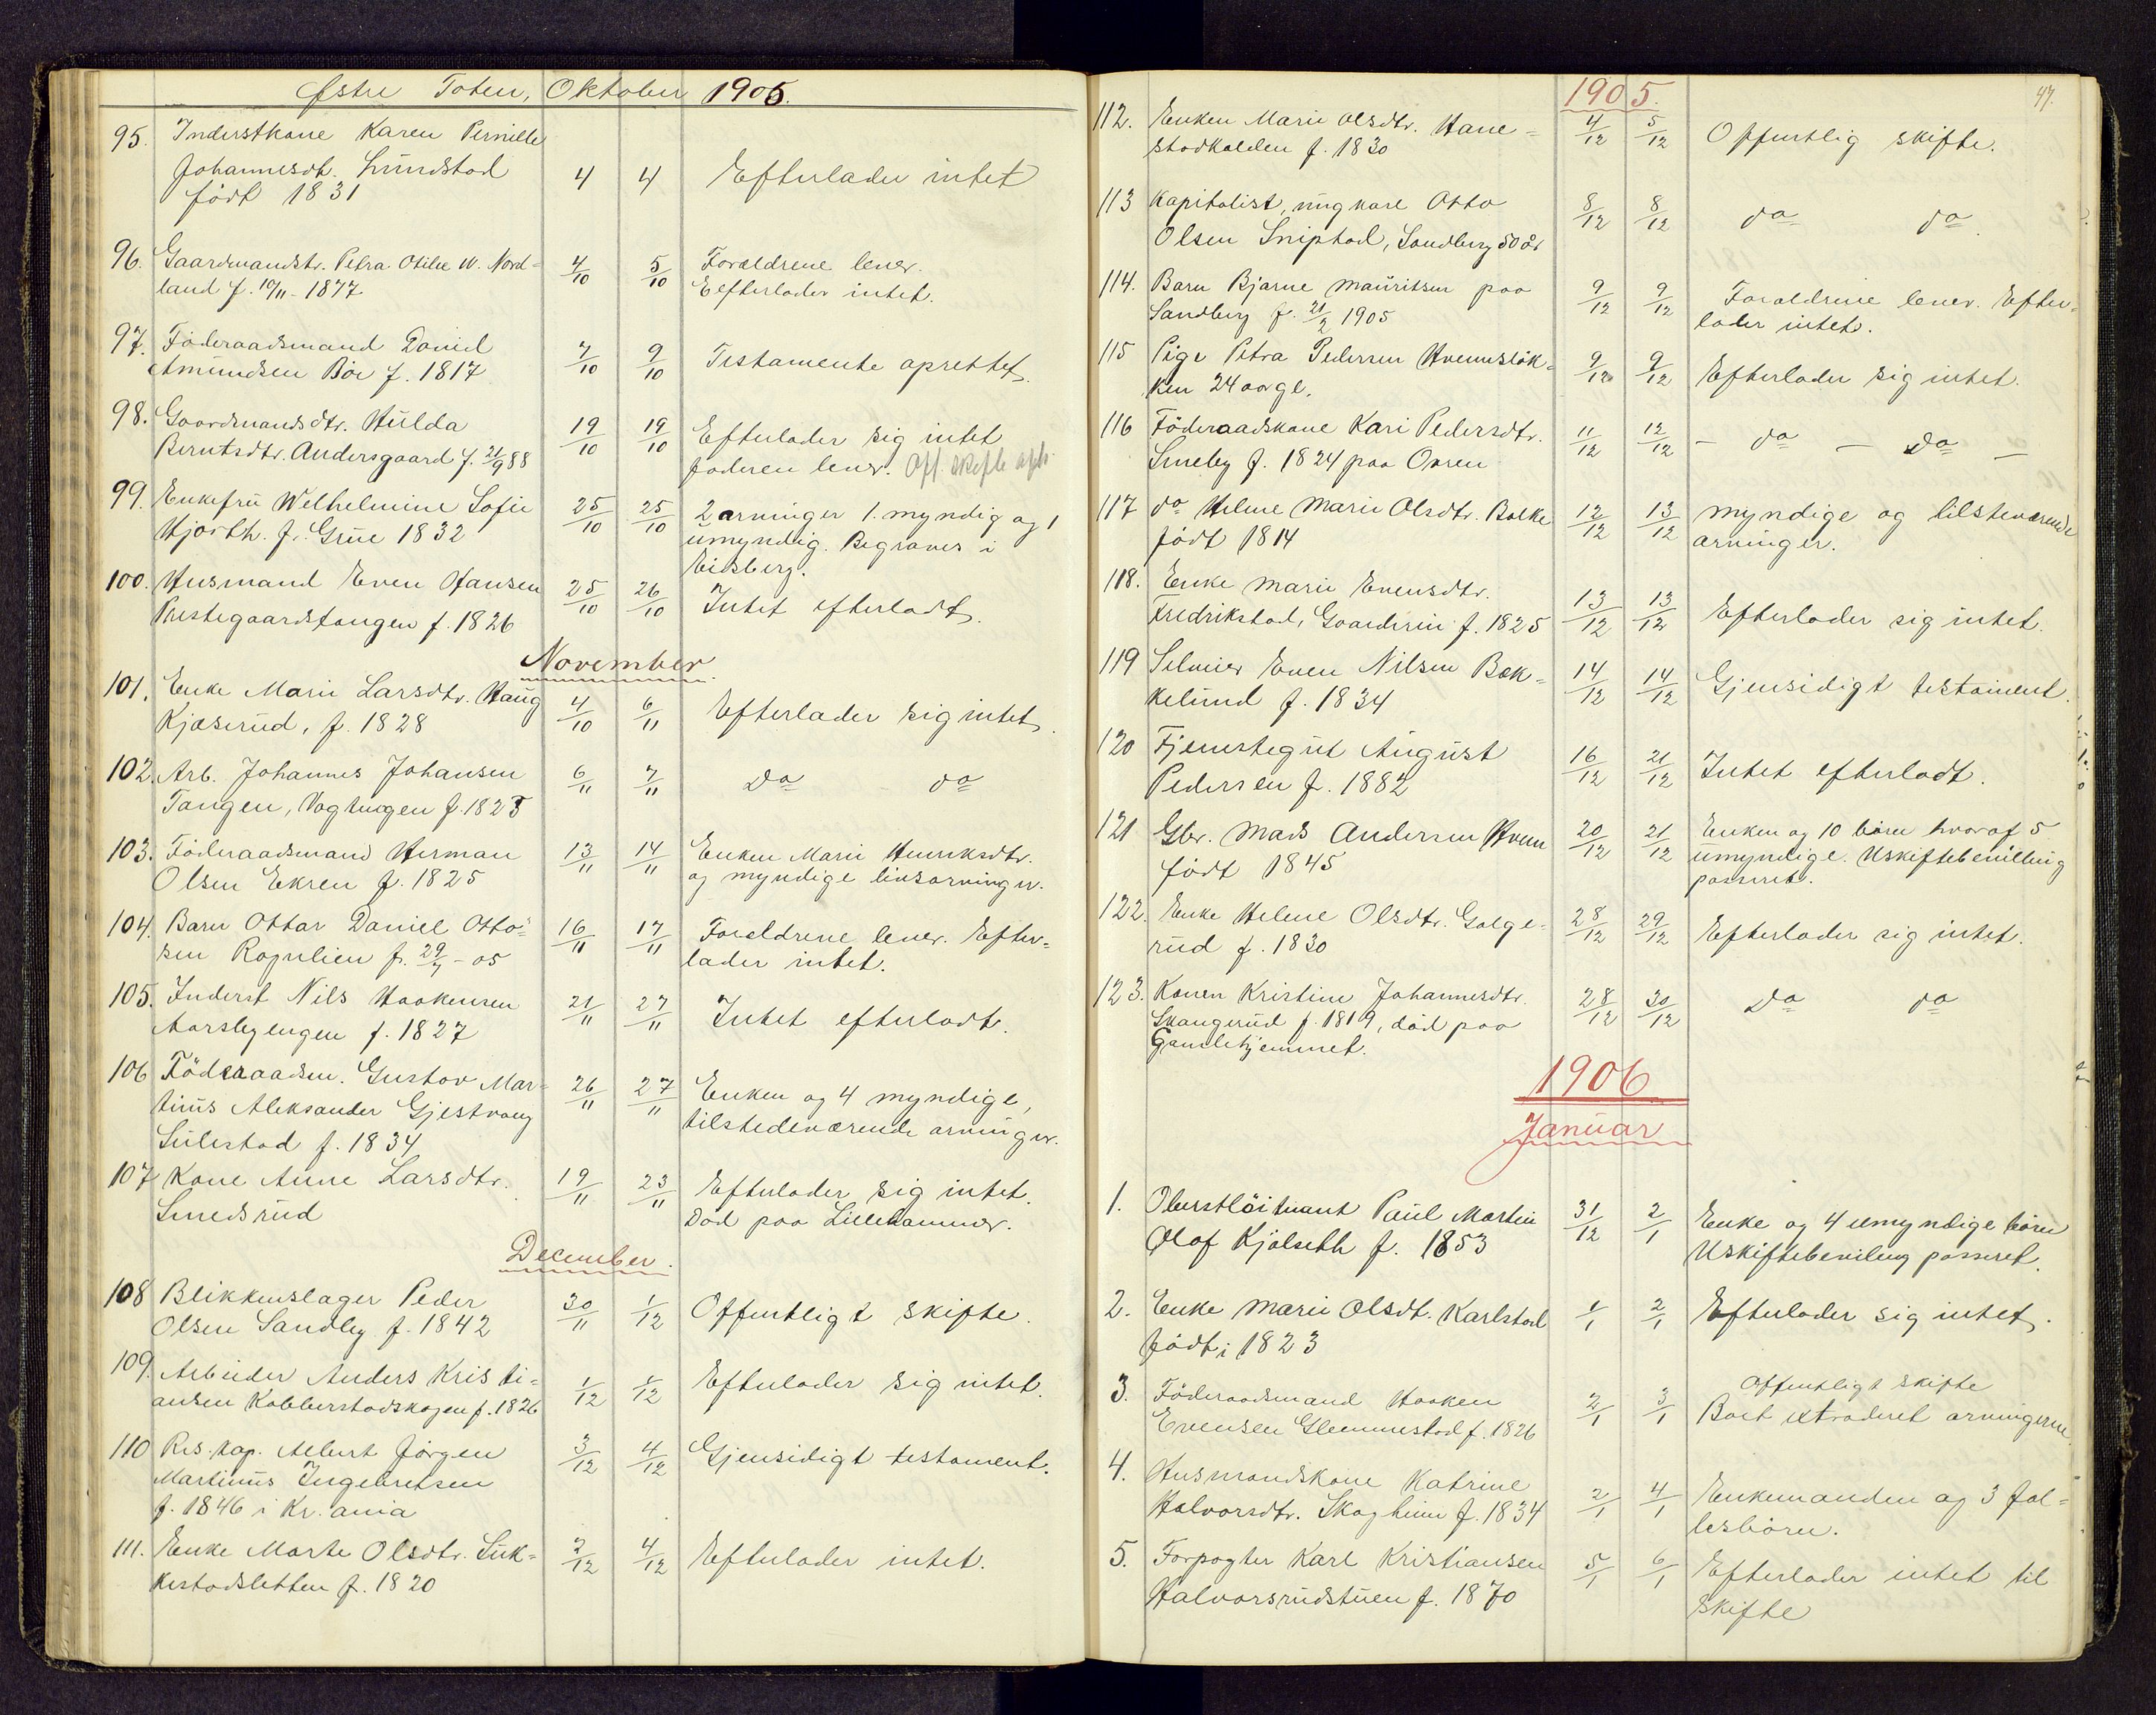 Østre Toten, Oktober 1905.
95. Inderstkone Karen Pernille
Johannesdt. Lundstad
født 1831 4 4 Efterlader intet
96. Gaardmandsdtr. Petra Otilie W. Nord=
land f. 10/11 - 1877 4/10 5/10 Forældrene lever.
Eefterlader intet.
97. Föderaadsmand Daniel
Amundsen Böe f. 1817 7/10 9/10 Testamente oprettet.
98. Gaardmandsdtr. Hulda
Berntsdtr. Andersgaard f. 21/9 88 19/10 19/10 Efterlader sig intet
faderen lever. Off. skifte
99. Enkefru Welhelmine Sofie
Hjorth. f. Grüe 1832 25/10 25/10 2 arninger 1. myndig og 1
umyndig. Begraves i
Eidsberg.
100. Husmand Even Hansen
Prestegaardstangen f. 1826 25/10 26/10 Intet efterladt.
November.
101. Enke Marie Larsdtr. Haug
Kjøserud, f. 1828 4/10 6/11 Efterlader sig intet.
102. Arb. Johannes Johansen
Tangen, f. 1823 6/11 7/11 do do
103. Föderaadsmand Herman
Olsen Ekren f. 1825 13/11 14/11 Enken Marie Henriksdtr.
og myndige livsarninger.
104. Barn Ottar Daniel Otto=
sen Rognlien f. 29/7 - 05 16/11 17/11 Forældrene lever. Efter=
lader intet.
105. Inderst Nils Haakensen
Aarsbyengen f. 1827 21/11 27/11 Intet efterladt.
106 Föderaadsm. Gustav Mar=
tinus Aleksander Gjestvang
Sulestad f. 1834 26/11 27/11 Enken og 4 myndige,
tilstedeværende arninger.
107 Kone Anne Larsdtr.
Smedsrud 19/11 23/11 Efterlader sig intet.
Død paa Lillehammer.
December.
108 Blikkenslager Peder
Olsen Sandby f. 1842 30/11 1/12 Offentligt skifte.
109. Arbeider Anders Kristi=
ansen Kolberstadskogen f. 1826 1/12 1/12 Efterlader sig intet.
110 Res. kap. Albert Jörgen
Martinus Ingebretsen
f. 1846 i Kr.ania 3/12 4/12 Gjensidigt testament.
111. Enke Marte Olsdtr. Suk=
kestadsletten f. 1820 2/12 4/12 Efterlader intet.
1905. 47.
112. Enken Marie Olsdtr. Hane=
stadkalden f. 1830 4/12 5/12 Offentlig skifte.
113 Kapitalist, ungkarl Otto
Olsen Sniptad, Sandberg 50 år 8/12 8/12 do do.
114. Barn Bjarne Mauritsen paa
Sandberg f. 21/2 1905 9/12 9/12 Forældrene lever. Efter=
lader intet.
115 Pige Petra Pedersen Hvemsløk=
ken 24 aar gl. 9/12 9/12 Efterlader sig intet.
116 Föderaadskone Kari Pedersdtr.
Smeby f. 1824 paa Ovren 11/12 12/12 - do - do -
117 do Helene Marie Olsdtr. Balke
født 1814 12/12 13/12 myndige og tilstedværende
arninger.
118. Enke Marie Evensdtr.
Fredrikstad, Gaarderin f. 1825 13/12 13/12 Efterlader sig intet.
119 Selveier Even Nilsen Bæk=
kelund f. 1834 14/12 14/12 Gjensidigt testament.
120 Tjenestegut August
Pedersen f. 1882 16/12 21/12 Intet efterladt.
121 Gbr. Mads Andersen Hvem
født 1845 20/12 21/12 Enken og 10 børn hvoraf 5
umyndige. Uskiftebevilling
passeret.
122. Enke Helene Olsdtr. Galge=
rud f. 1830 28/12 29/12 Efterlader sig intet.
123. Konen Kristine Johannesdtr.
Skangerud f. 1819, död paa
Gamlehjemmet. 28/12 30/12 do do
1906
Januar
1. Oberstlöitnant Paul Martin
Olaf Kjölseth f. 1853 31/12 2/1 Enke og 4 umyndige børn
Uskiftebeviling passeret.
2. Enke Marie Olsdt. Karlstad
født i 1823 1/1 2/1 Efterlader sig intet.
3. Föderaadsmand Haaken
Evensen Glemmestad f. 1826 2/1 3/1 Offentligt skifte
Boet extraderet arningerne.
4. Husmandskone Katrine
Halvorsdtr. Skogheim f. 1834 2/1 4/1 Enkemanden og 3 fæl=
lesbörn.
5. Forpagter Karl Kristiansen
Halvorsrudstuen f. 1870 5/1 6/1 Efterlader intet til
skifte